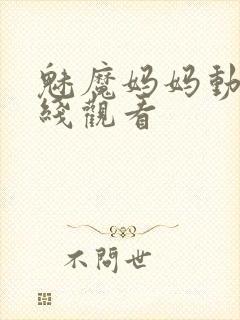 魅魔妈妈動
綫觀看
不問世